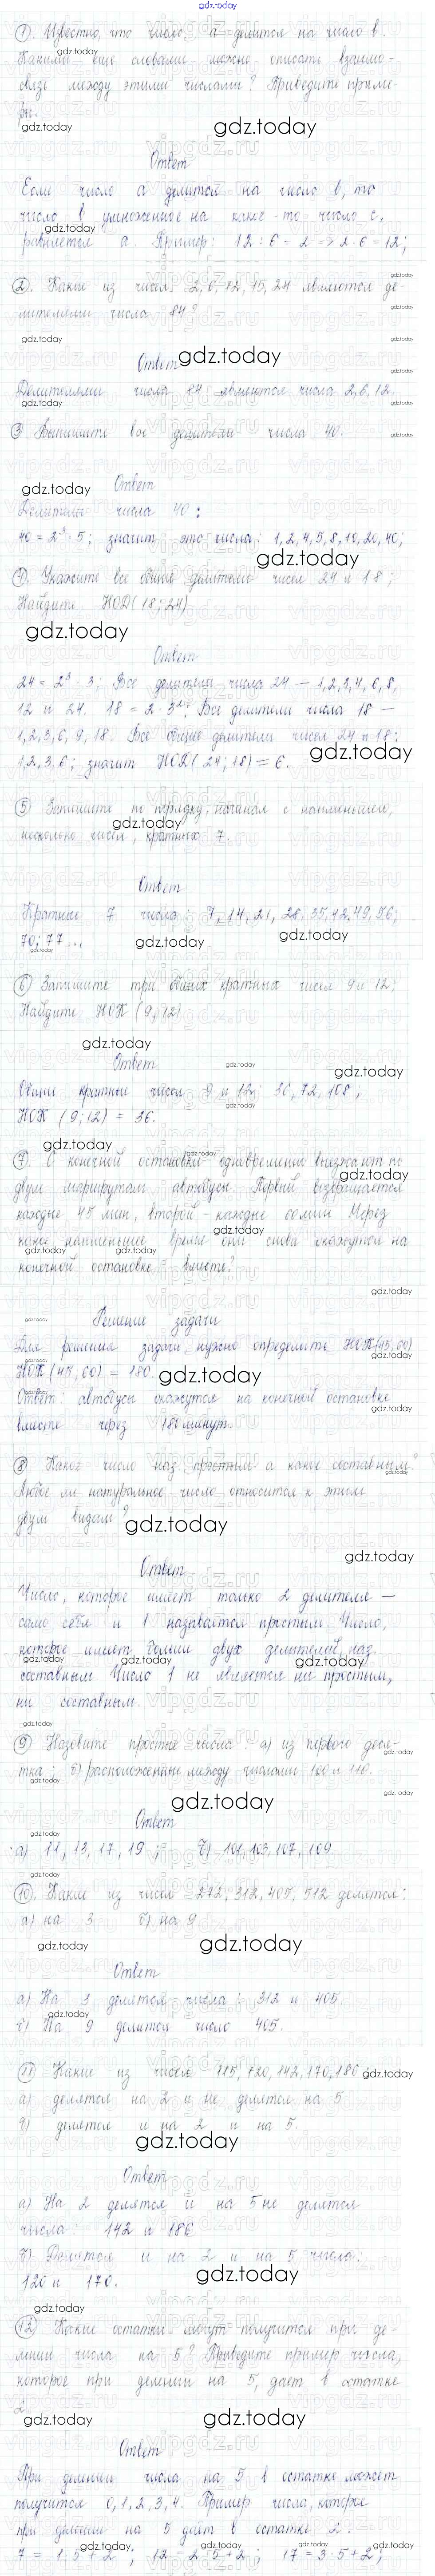 gdz.today
① Известно, что число a делится на число b.
Какими еще словами можно описать взаимо-
связь между этими числами? Приведите приме-
ры.
Ответ
Если число a делится на число b, то
число b умноженное на какое-то число c,
равняется a. Пример: 12 : 6 = 2 => 2 · 6 = 12;
②. Какие из чисел 2, 6, 12, 15, 24 являются де-
лителями числа 84?
Ответ
Делителями числа 84 являются числа 2, 6, 12.
③ Выпишите все делители числа 40.
Ответ
Делители числа 40:
40 = 2³ · 5; значит это числа: 1, 2, 4, 5, 8, 10, 20, 40;
Укажите все общие делители чисел 24 и 18;
Найдите НОД (18; 24)
Ответ
24 = 2³ · 3; Все делители числа 24 — 1, 2, 3, 4, 6, 8,
12 и 24. 18 = 2 · 3²; Все делители числа 18 —
1, 2, 3, 6, 9, 18. Все общие делители чисел 24 и 18:
1, 2, 3, 6; значит (24; 18) = 6.
⑤ Запишите по порядку, начиная с наименьшего,
несколько чисел, кратных 7.
Ответ
Кратные 7 числа: 7, 14, 21, 28, 35, 42, 49, 56;
70; 77...
⑥ Запишите три общих кратных чисел 9 и 12;
Найдите НОК (9; 12)
Ответ
Общие кратные чисел 9 и 12: 36, 72, 108;
НОК (9; 12) = 36.
⑦. С конечной остановки одновременно выезжают по
двум маршрутам автобусы. Первый возвращается
каждые 45 мин, второй - каждые 60 мин Через
какое наименьшее время они снова окажутся на
конечной остановке вместе?
Решение задачи
Для решения задачи нужно определить НОК (45, 60)
НОК (45, 60) = 180.
Ответ: автобусы окажутся на конечной остановке
вместе через 180 минут.
⑧ Какое число наз простым а какое составным?
Любое ли натуральное число относится к этим
двум видам?
Ответ
Число, которое имеет только 2 делителя —
само себя и 1 называется простым. Число,
которое имеет больше двух делителей, наз.
составным. Число 1 не является ни простым,
ни составным.
⑨ Назовите простые числа: а) из первого деся-
тка; б) расположенные между числами 100 и 110.
Ответ
а) 11, 13, 17, 19; б) 101, 103, 107, 109
⑩. Какие из чисел 272, 312, 405, 512 делятся:
а) на 3 б) на 9.
Ответ
а) На 3 делятся числа: 312 и 405.
б) На 9 делится число 405.
⑪ Какие из чисел 115, 120, 142, 170, 186
а) делятся на 2 и не делятся на 5
б) делятся и на 2 и на 5.
Ответ
а) На 2 делятся и на 5 не делятся
числа: 142 и 186
б) Делятся и на 2 и на 5 числа:
120 и 170.
⑫ Какие остатки могут получится при де-
лении числа на 5? Приведите пример числа,
которое при делении на 5, дает в остатке
2.
Ответ
При делении числа на 5 в остатке может
получится 0, 1, 2, 3, 4. Пример числа, которое
при делении на 5 дает в остатке 2:
7 = 1 · 5 + 2; 12 = 2 · 5 + 2; 17 = 3 · 5 + 2;